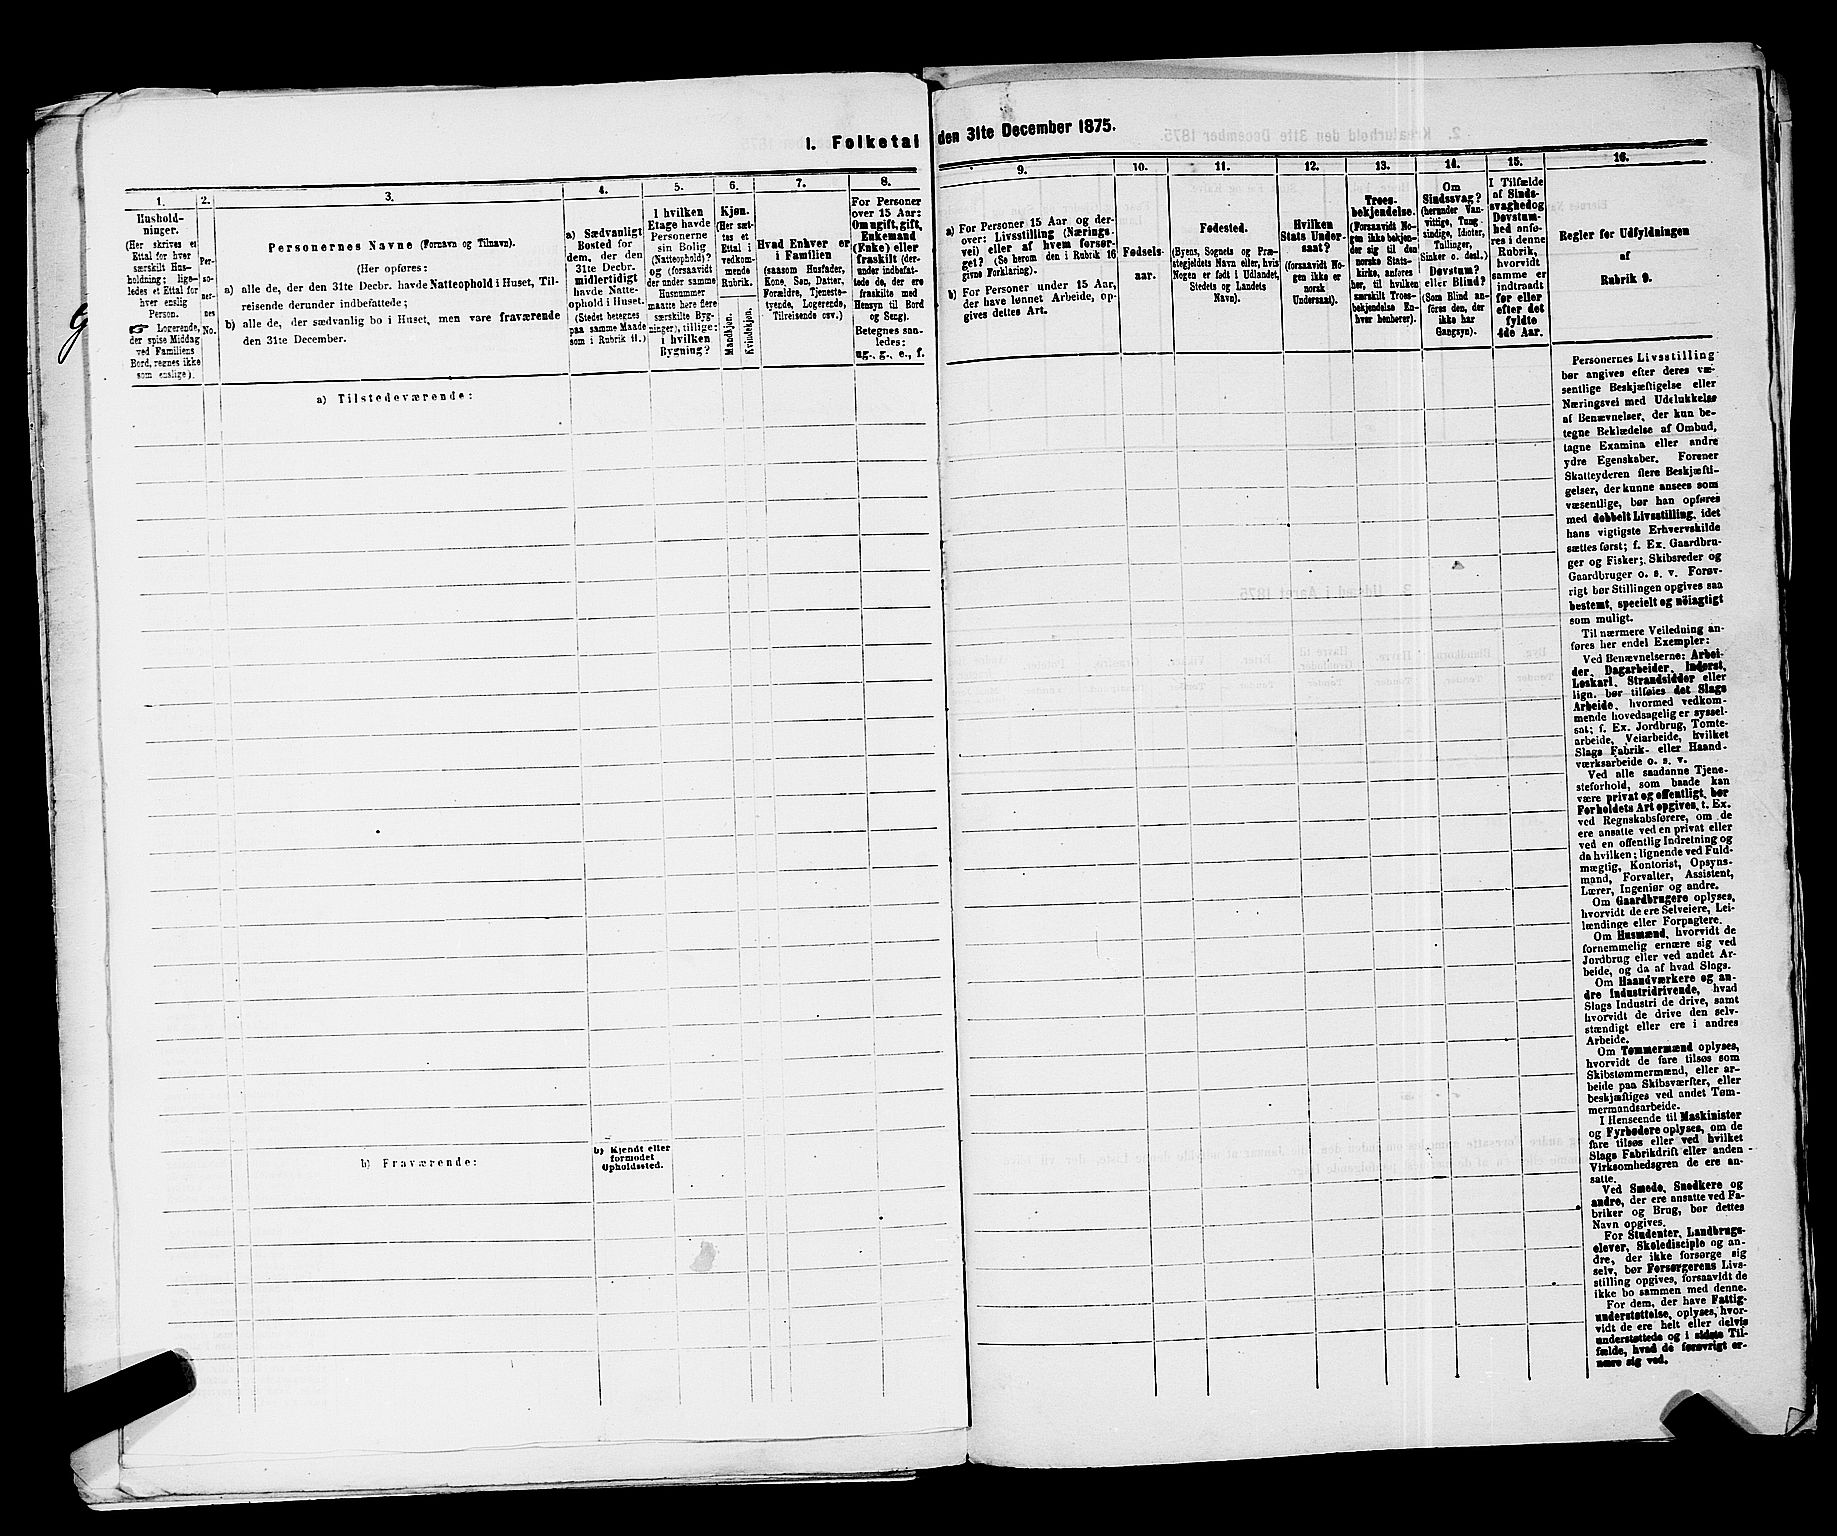 1. Folketal den 31te December 1875.
1.
Hushold-
ninger.
(Her skrives et
Ettal for hver
særskilt Hus-
holdning; lige-
ledes et Ettal for
hver enslig
Person.
☞ Logerende,
der spise Middag
ved Familiens
Bord, regnes ikke
som enslige).
2.
Per-
so-
ner-
nes
No.
3.
Personernes Navne (Fornavn og Tilnavn).
(Her opføres:
a) alle de, der den 31te Decbr. havde Natteophold i Huset, Til-
reisende derunder indbefattede;
b) alle de, der sædvanlig bo i Huset, men vare fraværende
den 31te December.
4.
a) Sædvanligt
Bosted for
dem, der den
31te Decbr.
midlertidigt
havde Natte-
ophold i Huset.
(Stedet betegnes
paa samme Maade
som i Rubrik 11.)
5.
I hvilken
Etage havde
Personerne
sin Bolig
(Natteophold)?
og (forsaavidt
der under samme
Husnummer
maatte høre flere
særskilte Byg-
ninger), tillige:
i hvilken
Bygning?
6.
Kjøn.
(Her sæt-
tes et
Ettal i
vedkom-
mende
Rubrik.
Mandkjøn.
Kvindekjøn.
7.
Hvad Enhver er
i Familien
(saasom Husfader,
Kone, Søn, Datter,
Forældre, Tjeneste-
tyende, Logerende,
Tilreisende osv.)
8.
For Personer
over 15 Aar:
Om ugift, gift,
Enkemand
(Enke) eller
fraskilt (der-
under indbefat-
tede de, der ere
fraskilte med
Hensyn til Bord
og Seng).
Betegnes saa-
ledes:
ug., g., e., f.
9.
a) For Personer 15 Aar og der-
over: Livsstilling (Nærings-
vei) eller af hvem forsør-
get? (Se herom den i Rubrik 16
givne Forklaring).
b) For Personer under 15 Aar,
der have lønnet Arbeide, op-
gives dettes Art.
10.
Fødsels-
aar.
11.
Fødested.
(Byens, Sognets og Præ-
stegjeldets Navn eller, hvis
Nogen er født i Udlandet,
Stedets og Landets
Navn).
12.
Hvilken
Stats Under-
saat?
(forsaavidt No-
gen ikke er
norsk
Undersaat).
13.
Troes-
bekjendelse.
(Forsaavidt No-
gen ikke bekjen-
der sig til den
norske Stats-
kirke, anføres
her, til hvilken
særskilt Troes-
bekjendelse En-
hver henhører).
14.
Om
Sindssvag?
(herunder Van-
vittige, Tung-
sindige, Idioter,
Tullinger,
Sinker o. desl.)
Døvstum?
eller Blind?
(Som Blind an-
føres den, der
ikke har
Gangsyn).
15.
I Tilfælde
af Sinds-
svaghed og
Døvstum-
hed anfø-
res i denne
Rubrik,
hvorvidt
samme er
indtraadt
før eller
efter det
fyldte
4de Aar.
16.
Regler for Udfyldningen
af
Rubrik 9.
a) Tilstedeværende:
b) Fraværende:
b) Kjendt eller
formodet
Opholdssted.
Personernes Livsstilling
bør angives efter deres væ-
sentlige Beskjæftigelse eller
Næringsvei med Udelukkelse
af Benævnelser, der kun be-
tegne Beklædelse af Ombud,
tagne Examina eller andre
ydre Egenskaber. Forener
Skatteyderen flere Beskjæfti-
gelser, der kunne ansees som
væsentlige, bør han opføres
med dobbelt Livsstilling, idet
hans vigtigste Erhvervskilde
sættes først; f. Ex. Gaardbru-
ger og Fisker; Skibsreder og
Gaardbruger o. s. v. Forøv-
rigt bør Stillingen opgives saa
bestemt, specielt og nøiagtigt
som muligt.
Til nærmere Veiledning an-
føres her endel Exempler:
Ved Benævnelserne: Arbei-
der, Dagarbeider, Inderst,
Løskarl, Strandsidder eller
lign. bør tilføies det Slags
Arbeide, hvormed vedkom-
mende hovedsagelig er syssel-
sat; f. Ex. Jordbrug, Tomte-
arbeide, Veiarbeide, hvilket
Slags Fabrik- eller Haand-
værksarbeide o. s. v.
Ved alle saadanne Tjene-
steforhold, som baade kan
være privat og offentligt, bør
Forholdets Art opgives, t. Ex.
ved Regnskabsførere, om de
ere ansatte ved en privat eller
ved en offentlig Indretning og
da hvilken; lignende ved Fuld-
mægtig, Kontorist, Opsyns-
mand, Forvalter, Assistent,
Lærer, Ingeniør og andre.
Om Gaardbrugere oplyses,
hvorvidt de ere Selveiere, Lei-
lændinge eller Forpagtere.
Om Husmænd, hvorvidt de
fornemmelig ernære sig ved
Jordbrug eller ved andet Ar-
beide, og da af hvad Slags.
Om Haandværkere og an-
dre Industridrivende, hvad
Slags Industri de drive, samt
hvorvidt de drive den selv-
stændigt eller ere i andres
Arbeide.
Om Tømmermænd oplyses,
hvorvidt de fare tilsøs som
Skibstømmermænd, eller ar-
beide paa Skibsværfter, eller
beskjæftiges ved andet Tøm-
mermandsarbeide.
I Henseende til Maskinister
og Fyrbødere oplyses, om de
fare tilsøs eller ved hvilket
Slags Fabrikdrift eller anden
Virksomhedsgren de ere an-
satte.
Ved Smede, Snedkere og
andre, der ere ansatte ved Fa-
briker og Brug, bør dettes
Navn opgives.
For Studenter, Landbrugs-
elever, Skoledisciple og an-
dre, der ikke forsørge sig
selv, bør Forsørgerens Livs-
stilling opgives, forsaavidt de
ikke bo sammen med denne.
For dem, der have Fattig-
understøttelse, oplyses, hvor-
vidt de ere helt eller delvis
understøttede og i sidste Til-
fælde, hvad de forøvrigt er-
nære sig ved.